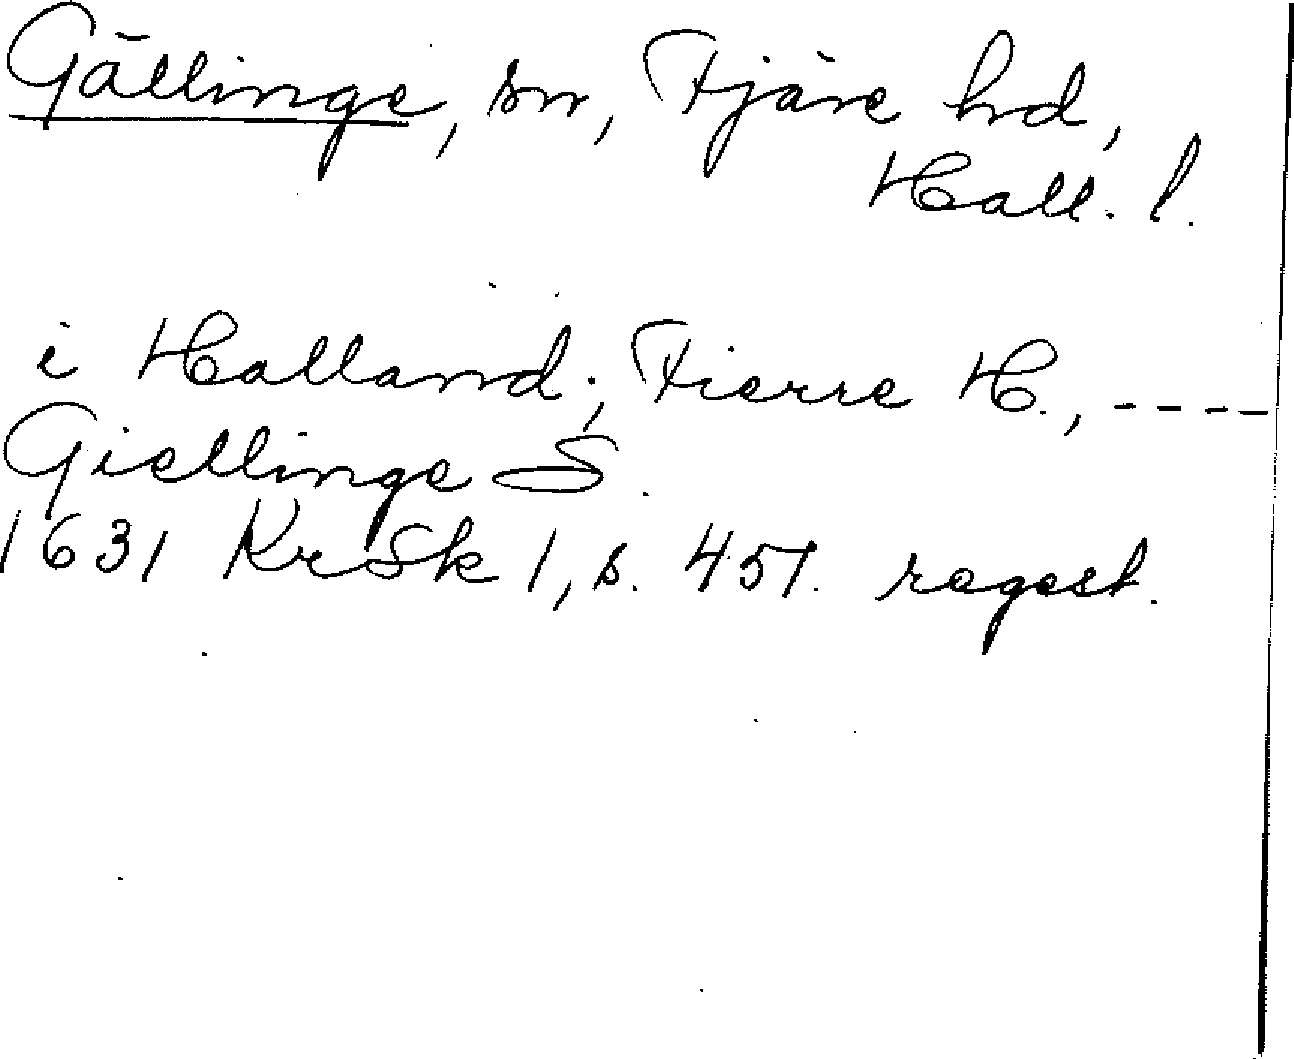 Gällinge, sn, Fjäre hd,
Hall. l.
i Halland; Fierre H., ----
Giellinge S.
1631 KrSk 1, s. 451. regest.